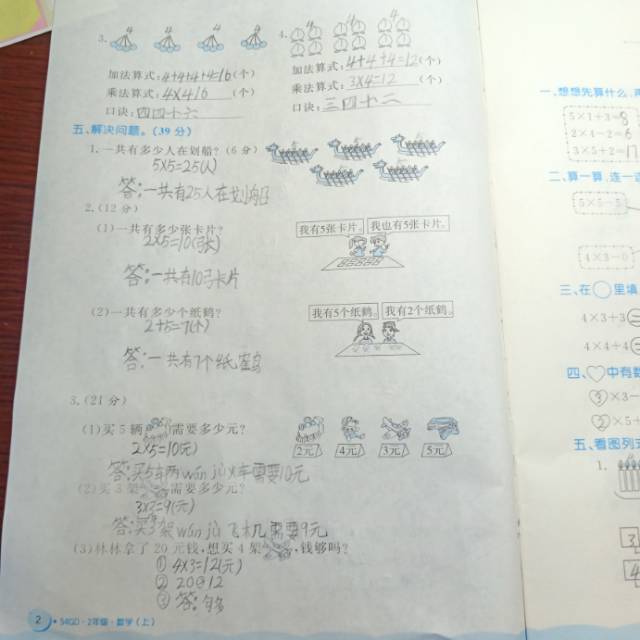 3.
4.
加法算式:4+4+4+4=16(个)
加法算式:4+4+4=12(个)
乘法算式:4×4=16(个)
乘法算式:3×4=12(个)
口诀:四四十六
口诀:三四十二
五、解决问题。(39 分)
1. 一共有多少人在划船?(6 分)
5×5=25(人)
答:一共有25人在划船
2.(12 分)
(1)一共有多少张卡片?
我有5张卡片。 我也有5张卡片。
2×5=10(张)
答:一共有10张卡片
(2)一共有多少个纸鹤?
我有5个纸鹤。 我有2个纸鹤。
2+5=7(个)
答:一共有7个纸
3.(21 分)
(1)买 5 辆 需要多少元?
2×5=10(元)
2元 4元 3元 5元
答:买5辆wán jù火车需要10元
(2)买 3 架 需要多少元?
3×3=9(元)
答:买3架wán jù飞机需要9元
(3)林林拿了 20 元钱,想买 4 架 ,钱够吗?
① 4×3=12(元)
② 20 12
③ 答:够
2 · 54GD · 2年级 · 数学(上)
一、想想先算什么,
5×1+3=8
2×4-2=6
3×5+2=17
二、算一算,连一
5×5-
4×3-
三、在○里填
4×3+3
4×4+4
四、♡中有
③×3-
②×5+
五、看图列
1.
3
4